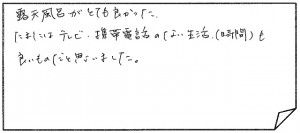 露天風呂がとても良かった。
たまにはテレビ・携帯電話のない生活(時間)も
良いものだと思いました。